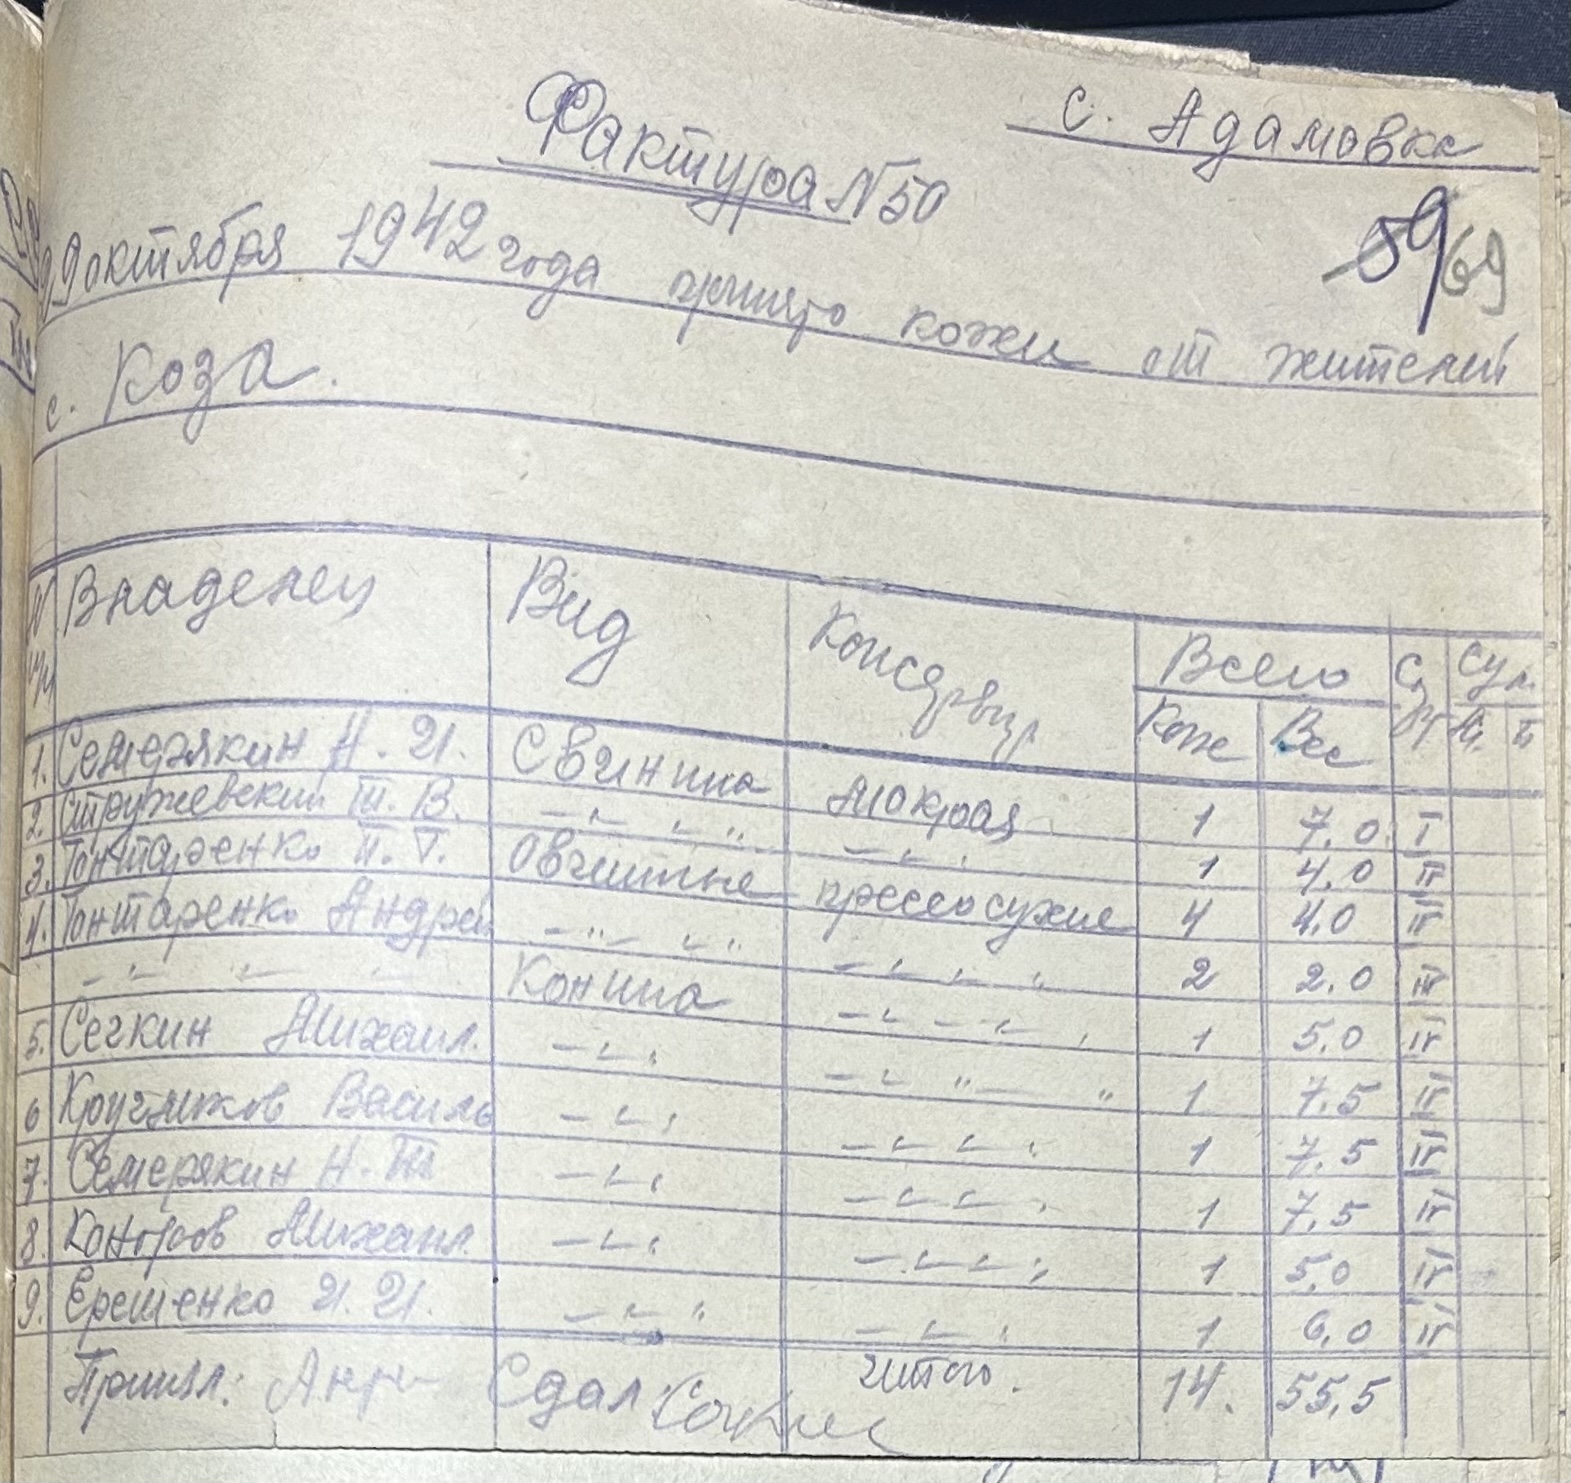 с. Адамовка
Фактура N 50
59/69
29 октября 1942 года принято кожи от жителей
с. Коза.
N Владелец Вид Консервир Всего Сорт Сум.
п/п Кож Вес
1. Семерякин Н. И. Свинина мокрая 1 7,0 I
2. Стружевский Т. В. —〃— 〃 —〃— 1 4,0 II
3. Гонтаренко П. Г. Овчинные пресносухие 4 4,0 II
4. Гонтаренко Андрей —〃— 〃 —〃— 〃 2 2,0 III
—〃— 〃 Конина —〃— 〃 1 5,0 II
5. Сечкин Михаил. —〃— —〃— 〃 1 7,5 II
6 Кругликов Василь —〃— —〃— 〃 1 7,5 II
7. Семерякин Н. Т —〃— —〃— 〃 1 7,5 II
8. Коноров Михаил. —〃— —〃— 〃 1 5,0 II
9. Ерешенко И. И. —〃— 〃 —〃— 1 6,0 II
Принял: Сдал: Итого. 14. 55,5